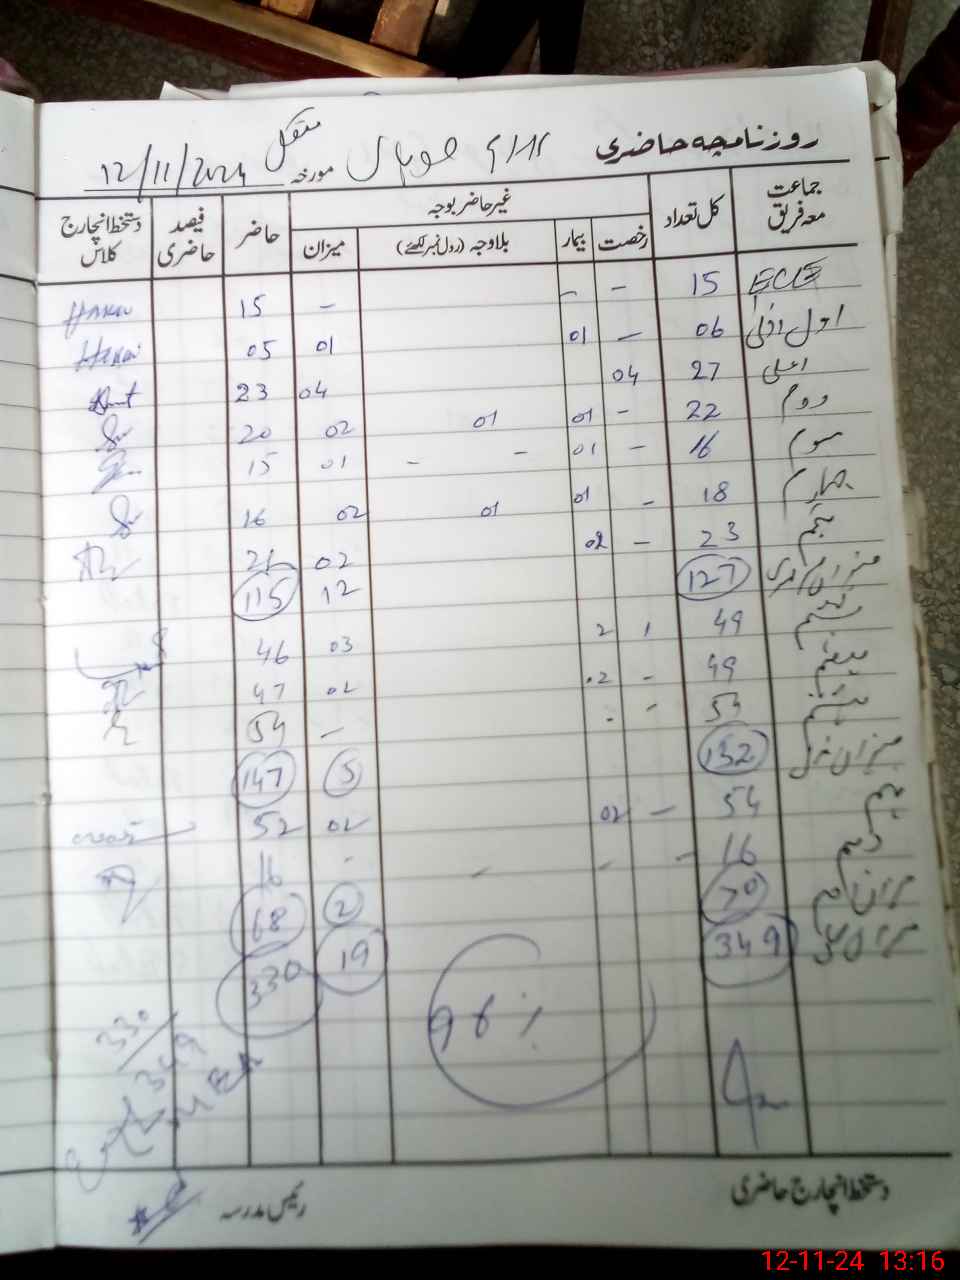 روزنامچہ حاضری
مورخہ 12/11/2024 منگل
جماعت معہ فریق کل تعداد غیر حاضر بوجہ حاضر فیصد حاضری دستخط انچارج کلاس
رخصت بیمار بلاوجہ (رول نمبر لکھئے) میزان
ECE 15 - - - 15
اول ادنیٰ 06 - 01 01 05
اعلیٰ 27 04 04 23
دوم 22 - 01 01 02 20
سوم 16 - 01 - - 01 15
چہارم 18 - 01 01 02 16
پنجم 23 - 02 02 21
میزان پرائمری 127 12 115
ششم 49 1 2 03 46
ہفتم 49 - 02 02 47
ہشتم 54 - - - 54
میزان مڈل 152 5 147
نہم 54 - 02 02 52
دہم 16 - - - - 16
میزان 70 2 68
میزان کل 349 19 330
96%
330
349
دستخط انچارج حاضری رئیس مدرسہ
12-11-24 13:16